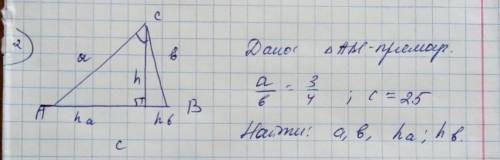 2
C
a
в
h
A
B
ha
hв
c
Дано: △ АВС-прямоуг.
a/в = 3/4 ; c = 25
Найти: a, в, ha; hв.